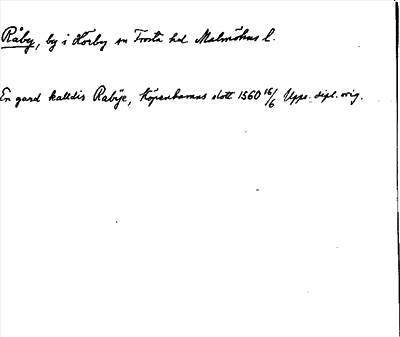 Råby, by i Hörby sn Frosta hd Malmöhus l.
En gard kalldis Rabÿe, Köpenhamns slott 1560 16/6 Upps. dipl. orig.